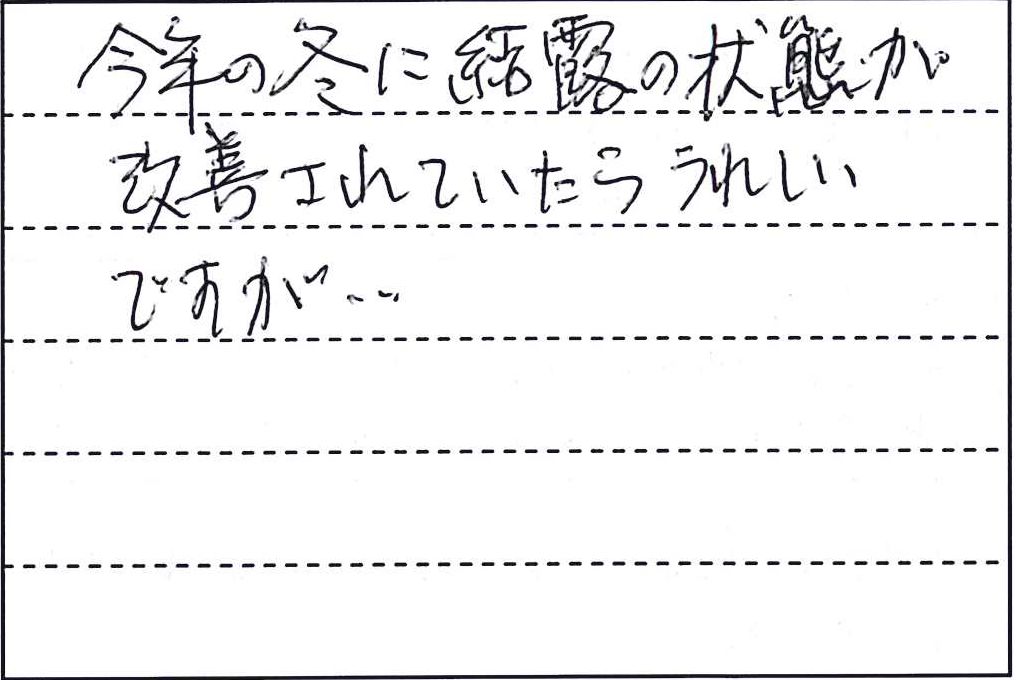 今年の冬に結露の状態が
改善されていたらうれしい
ですが…